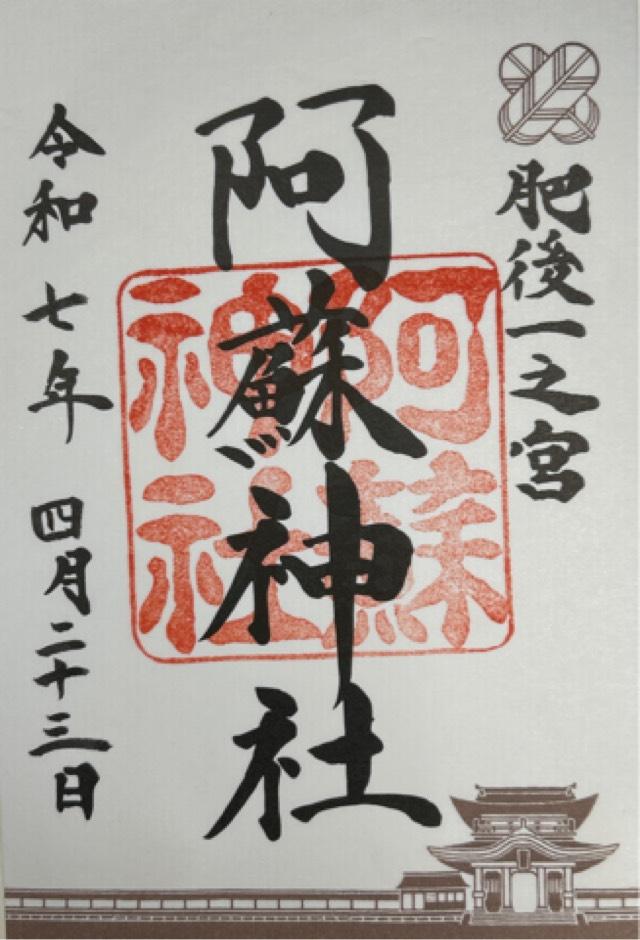 肥後一之宮
阿蘇神社
阿蘇
神社
令和七年四月二十三日